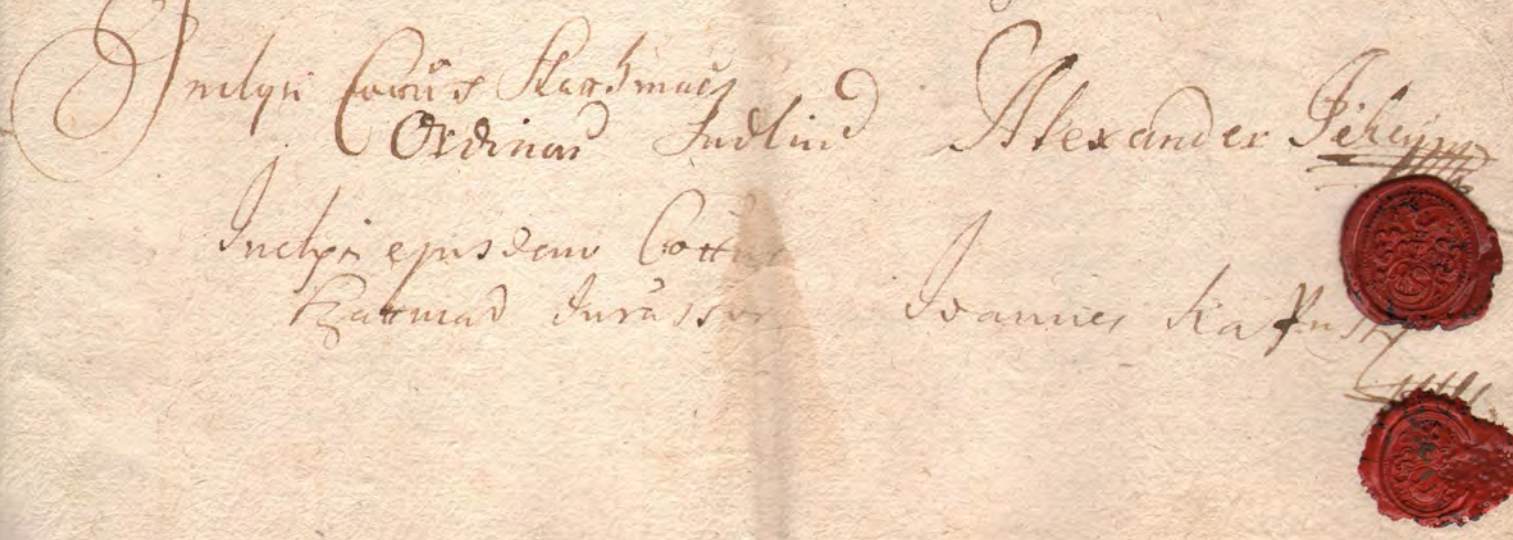 Inclyti Cottus Szattmar
Ordinar Judlium Alexander
Inclyti ejusdem Cottus
Szattmar Jurassor Joannes Kapusy